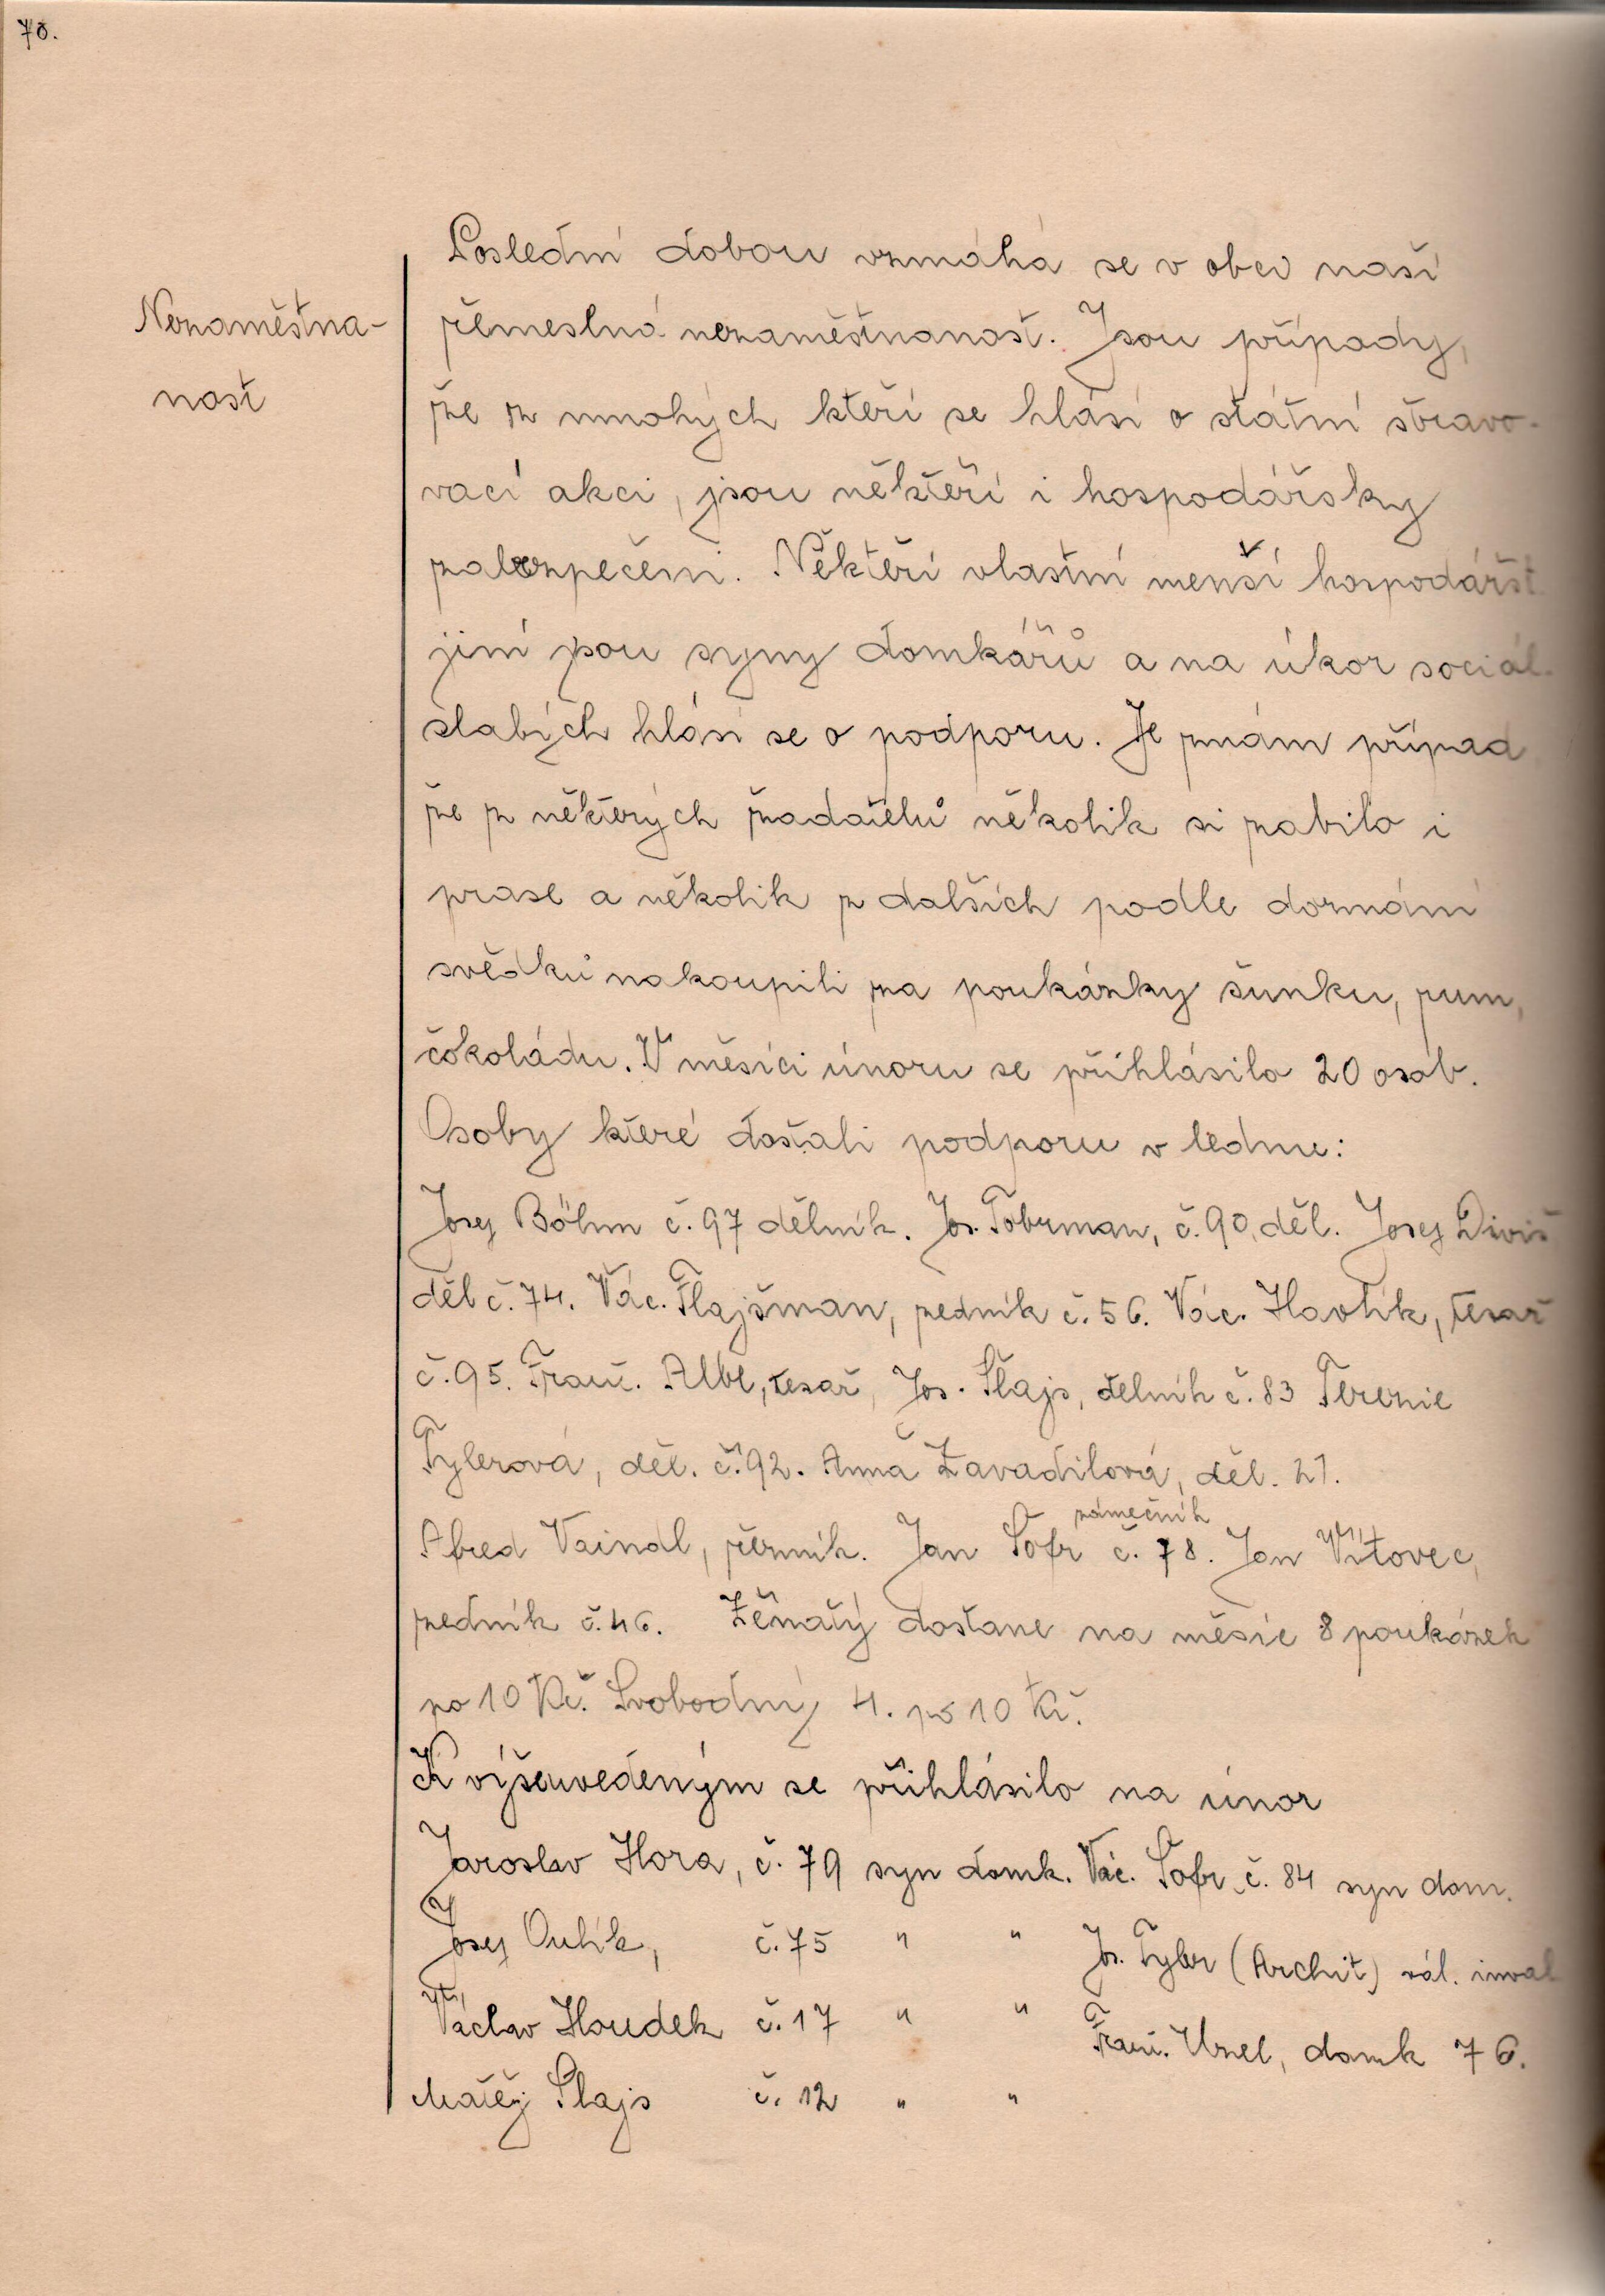 70.
Poslední dobou vzmáhá se v obci naší
Nezaměstna-
řemeslná nezaměstnanost. Jsou případy,
nost
že z mnohých kteří se hlásí o státní stravo-
vací akci, jsou někteří i hospodářsky
zabezpečeni. Někteří vlastní menší hospodářst
jiní jsou syny domkářů a na úkor sociál.
slabých hlásí se o podporu. Je znám případ
že z některých žadatelů několik si zabilo i
prase a několik z dalších podle doznání
svědků nakoupili za poukázky šunku, rum,
čokoládu. V měsíci únoru se přihlásilo 20 osob.
Osoby které dostali podporu v lednu:
Josef Böhm č. 97 dělník. Jos. Tobrman, č. 90, děl. Josef Diviš
děl č. 74. Vác. Flajšman, zedník č. 56. Vác. Havlík, tesař
č. 95. Frant. Albl, tesař, Jos. Šlajs, dělník č. 83 Terezie
Tylerová, děl. č. 92. Anna Zavadilová, děl. 21.
zámečník
Alfred Vaindl, řezník. Jan Šofr č. 78. Jan Vítovec,
zedník č. 46. Ženatý dostane na měsíc 8 poukázek
po 10 Kč. Svobodný 4. po 10 Kč.
K výšeuvedeným se přihlásilo na únor
Jaroslav Hora, č. 79 syn domk. Vác. Šofr č. 84 syn dom.
Josef Oulík, č. 75 " " Jos. Tyler (Archit) vál. inval
Václav Houdek č. 17 " " Frant. Uzel, domk 76.
Matěj Šlajs č. 12 " "